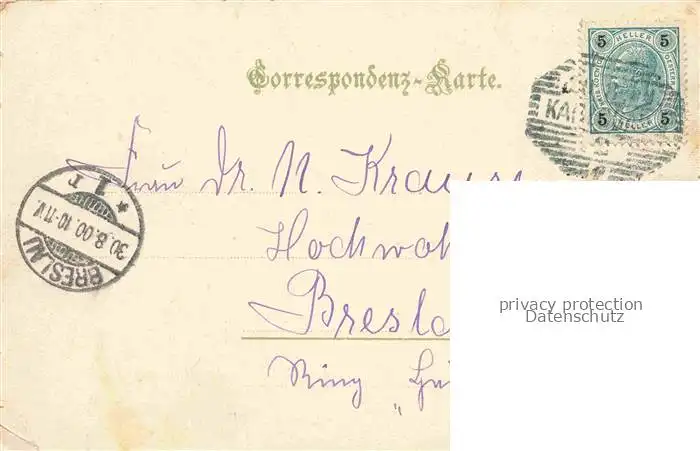 5 HELLER 5
5 HELLER 5
KA
Correspondenz-Karte.
Frau Dr. N. Kraus
Hochwoh
Bresla
Ring
BRESLAU
30.8.00.10-11V.
* 1 r
privacy protection
Datenschutz